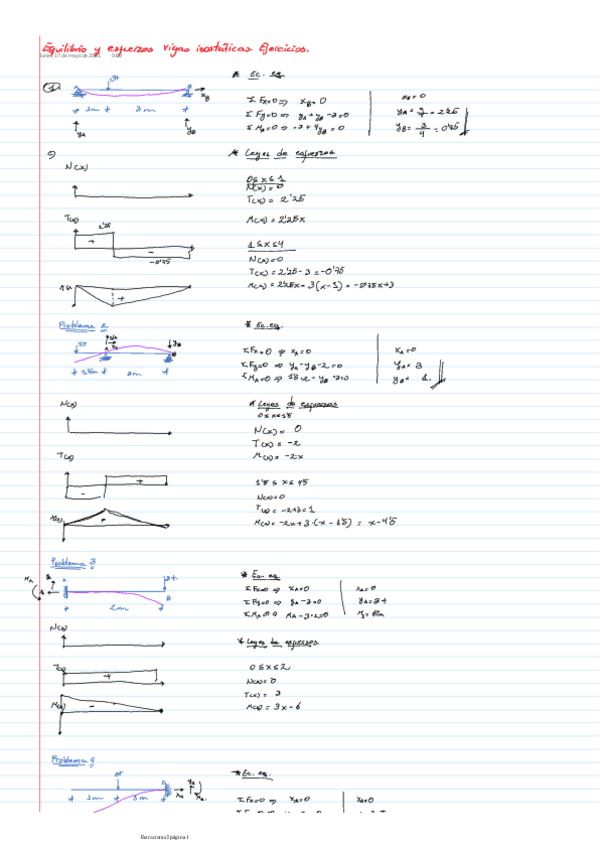 Equilibrio y esfuerzos vigas isostáticas Ejercicios.
lunes, 17 de mayo de
* Ec. eq.
ΣFx=0 ⇒ xB=0
ΣFy=0 ⇒ yA+yB-3=0
ΣMA=0 ⇒ -3+4yB=0
xB=0
yA=9/4=2'25
yB=3/4=0'75
1m 3m
xB
yA
yB
* Leyes de esfuerzos
N(x)
0≤x≤1
N(x)=0
T(x)=2'25
M(x)=2'25x
T(x)
2'25
+
-
-0'75
1≤x≤4
N(x)=0
T(x)=2'25-3=-0'75
M(x)=2'25x-3(x-1)=-0'75x+3
+
Problema 2
* Ec. eq.
ΣFx=0 ⇒ xA=0
ΣFy=0 ⇒ yA-yB-2=0
xA=0
yA=3
yB=1
3m
N(x)
* Leyes de esfuerzos
0≤x≤1'5
N(x)=0
T(x)=-2
M(x)=-2x
T(x)
+
-
1'5≤x≤4'5
N(x)=0
T(x)=-2+3=1
M(x)=-2x+3·(x-1'5)=x-4'5
M(x)
-
Problema 3
* Ec. eq.
ΣFx=0 ⇒ xA=0
ΣFy=0 ⇒ yA-3=0
ΣMA=0 ⇒ MA-3·2=0
xA=0
yA=3t
MA
A
B
2m
N(x)
* Leyes de esfuerzos.
0≤x≤2
N(x)=0
T(x)=3
M(x)=3x-6
T(x)
+
M(x)
-
Problema 4
* Ec. eq.
ΣFx=0 ⇒ xA=0
xA=0
3m
yA
xA
MA
Estructuras I página 1